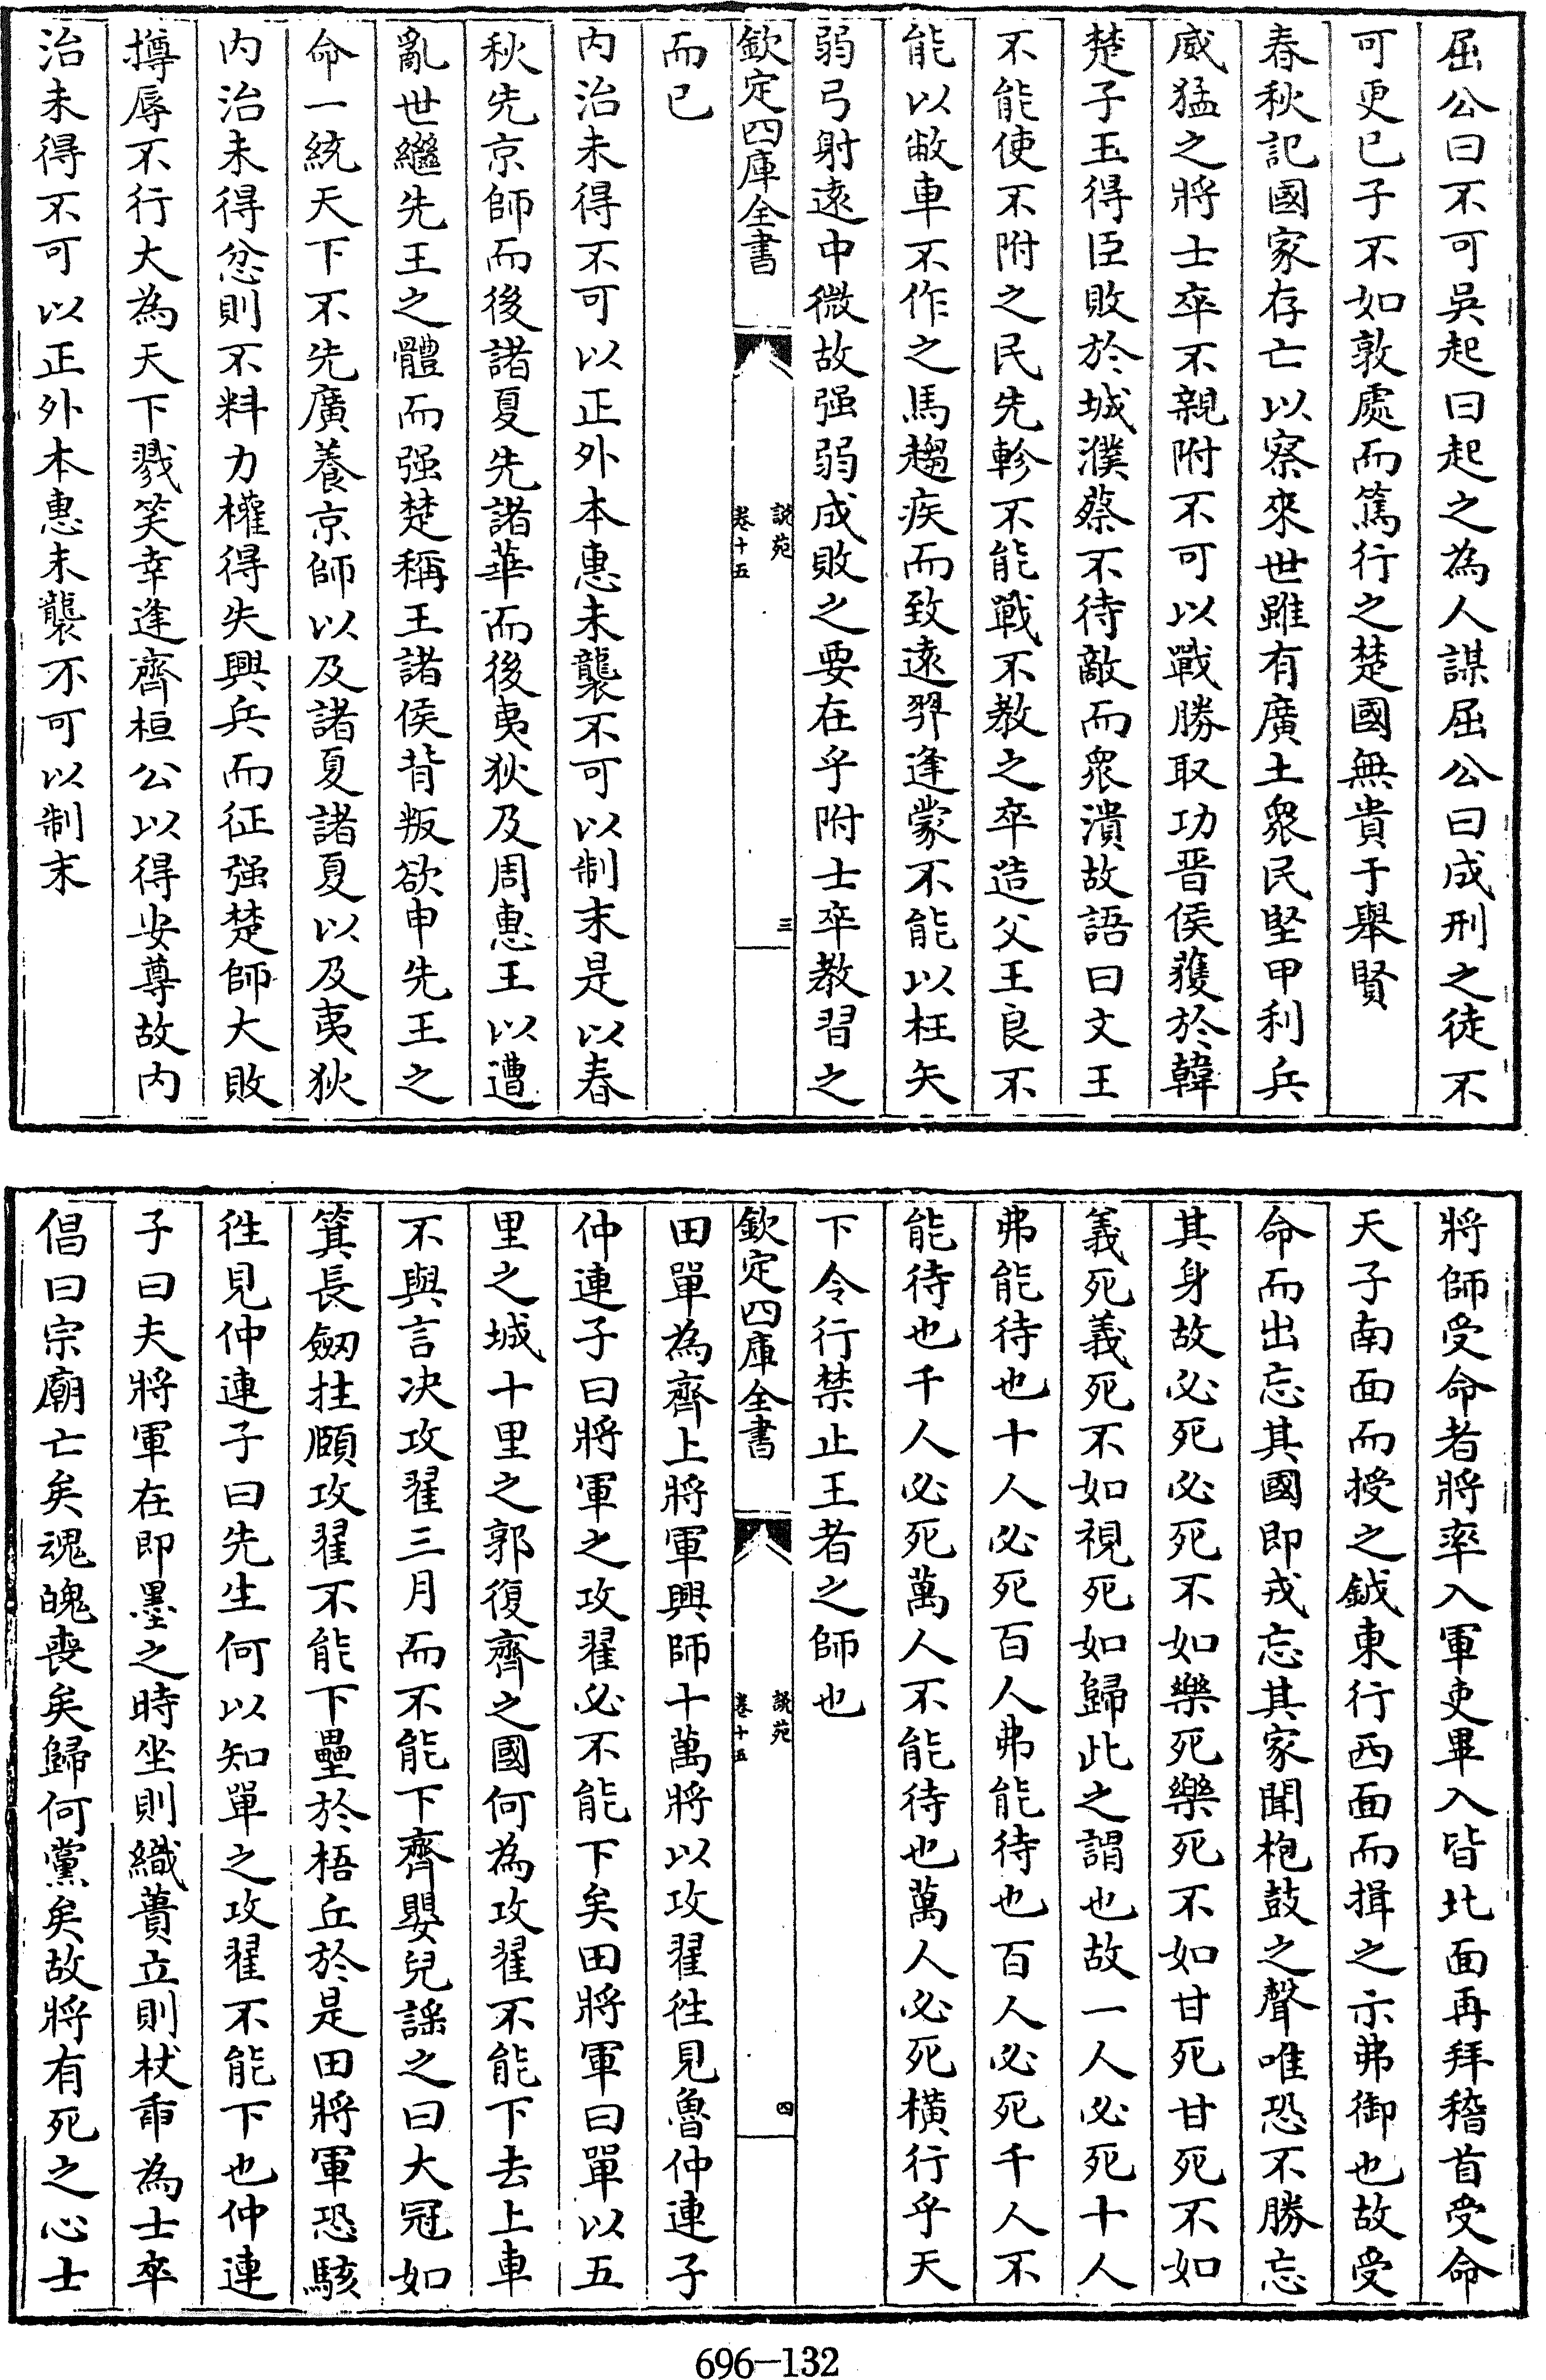 屈公曰不可吳起曰起之為人謀屈公曰成刑之徒不
可更已子不如敦處而篤行之楚國無貴于舉賢
春秋記國家存亡以察來世雖有廣土衆民堅甲利兵
威猛之將士卒不親附不可以戰勝取功晋侯獲於韓
楚子玉得臣敗於城濮蔡不待敵而衆潰故語曰文王
不能使不附之民先軫不能戰不教之卒造父王良不
能以敝車不作之馬趨疾而致遠羿逢蒙不能以枉矢
弱弓射遠中微故强弱成敗之要在乎附士卒教習之
欽定四庫全書
說苑
卷十五
三
而已
内治未得不可以正外本惠未襲不可以制末是以春
秋先京師而後諸夏先諸華而後夷狄及周惠王以遭
亂世繼先王之體而强楚稱王諸侯背叛欲申先王之
命一統天下不先廣養京師以及諸夏諸夏以及夷狄
内治未得忿則不料力權得失興兵而征强楚師大敗
撙辱不行大為天下戮笑幸逢齊桓公以得安尊故内
治未得不可以正外本惠未襲不可以制末
將師受命者將率入軍吏畢入皆北面再拜稽首受命
天子南面而授之鉞東行西面而揖之示弗御也故受
命而出忘其國即戎忘其家聞枹鼓之聲唯恐不勝忘
其身故必死必死不如樂死樂死不如甘死甘死不如
義死義死不如視死如歸此之謂也故一人必死十人
弗能待也十人必死百人弗能待也百人必死千人不
能待也千人必死萬人不能待也萬人必死橫行乎天
下令行禁止王者之師也
欽定四庫全書
說苑
卷十五
四
田單為齊上將軍興師十萬將以攻翟徃見魯仲連子
仲連子曰將軍之攻翟必不能下矣田將軍曰單以五
里之城十里之郭復齊之國何為攻翟不能下去上車
不與言决攻翟三月而不能下齊嬰兒謡之曰大冠如
箕長劒拄頤攻翟不能下壘於梧丘於是田將軍恐駭
徃見仲連子曰先生何以知單之攻翟不能下也仲連
子曰夫將軍在即墨之時坐則織蕢立則杖臿為士卒
倡曰宗廟亡矣魂魄喪矣歸何黨矣故將有死之心士
696—132